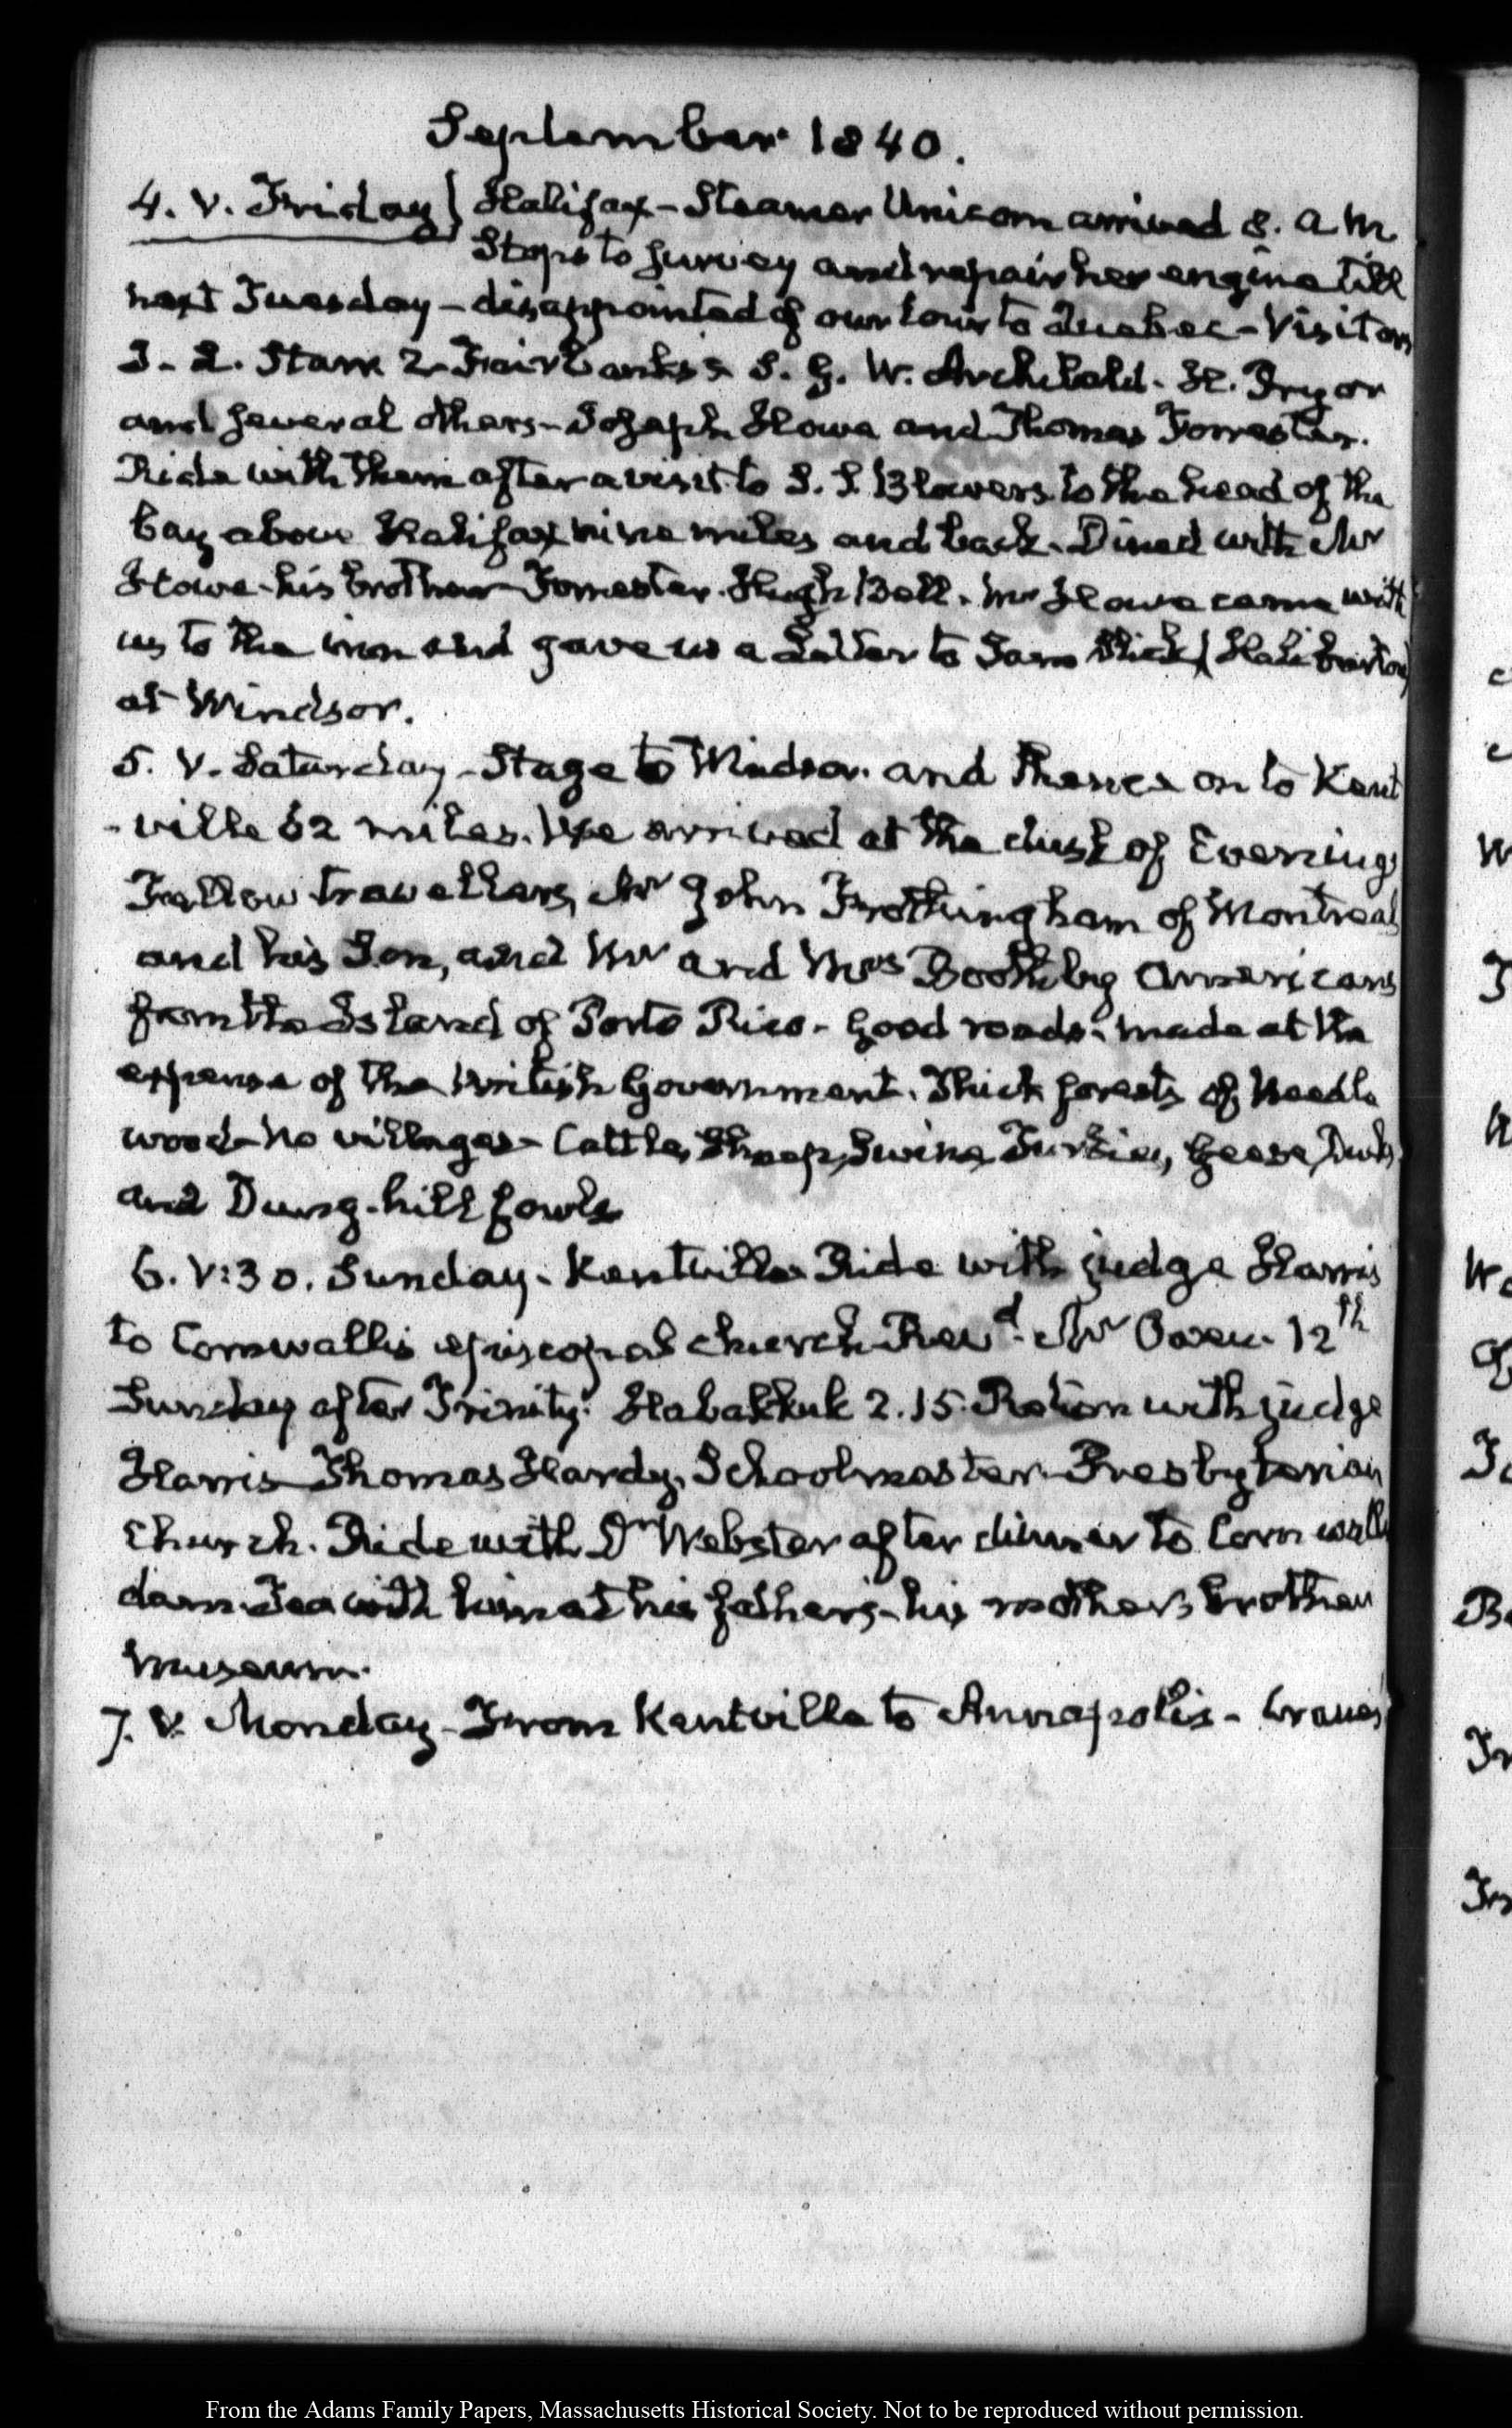 September 1840.
4. V. Friday} Halifax - Steamer Unicorn arrived 8. a.m.
Stops to survey and repair her engine till
next Tuesday - disappointed of our tour to Quebec - Visitors
J. L. Starr 2 Fairbanks's S. G. W. Archibald. H. Pryor
and several others - Joseph Howe and Thomas Forrester.
Ride with them after a visit to S. S. Blowers to the head of the
bay above Halifax nine miles and back. Dined with Mr
Howe - his brother Forrester. Hugh Bell. Mr Howe came with
us to the inn and gave us a Letter to Sam Slick (Haliburton)
at Windsor.
5. V. Saturday - Stage to Windsor. and thence on to Kent
-ville 62 miles. We arrived at the dusk of Evening
Fellow travellers, Mr John Frothingham of Montreal
and his Son, and Mr and Mrs Boothby Americans
from the Island of Porto Rico - good roads - made at the
expense of the British Government. Thick forests of Needle
wood - no villages - Cattle, Sheep, Swine, Turkies, Geese, Ducks
and Dung-hill fowls
6. V:30. Sunday. Kentville Ride with judge Harris
to Cornwallis episcopal church Revd. Mr Owen. 12th
Sunday after Trinity. Habakkuk 2.15. Return with judge
Harris - Thomas Hardy, Schoolmaster. Presbyterian
Church. Ride with Dr Webster after dinner to Cornwallis
dam. Tea with him at his father's - his mother, brother
museum.
7. V. Monday - From Kentville to Annapolis -
From the Adams Family Papers, Massachusetts Historical Society. Not to be reproduced without permission.